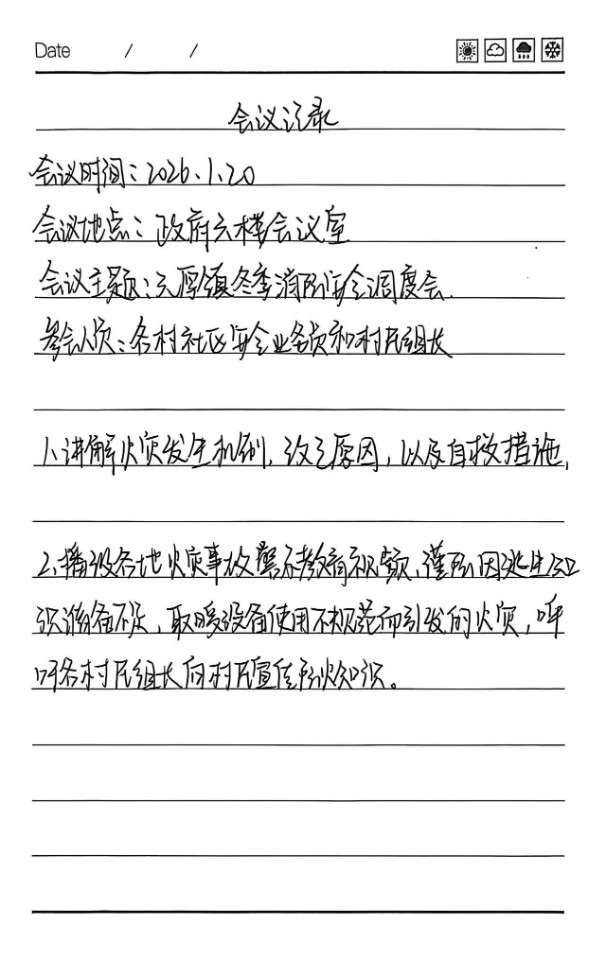 Date / /
会议记录
会议时间：2026.1.20
会议地点：政府六楼会议室
会议主题：天厚镇冬季消防安全调度会.
参会人员：各村社区安全业务员和村民组长
1.讲解火灾发生机制，致灾原因，以及自救措施，
2.播放各地火灾事故警示教育视频，谨防因逃生知
识储备不足，取暖设备使用不规范而引发的火灾，呼
吁各村民组长向村民宣传防火知识。